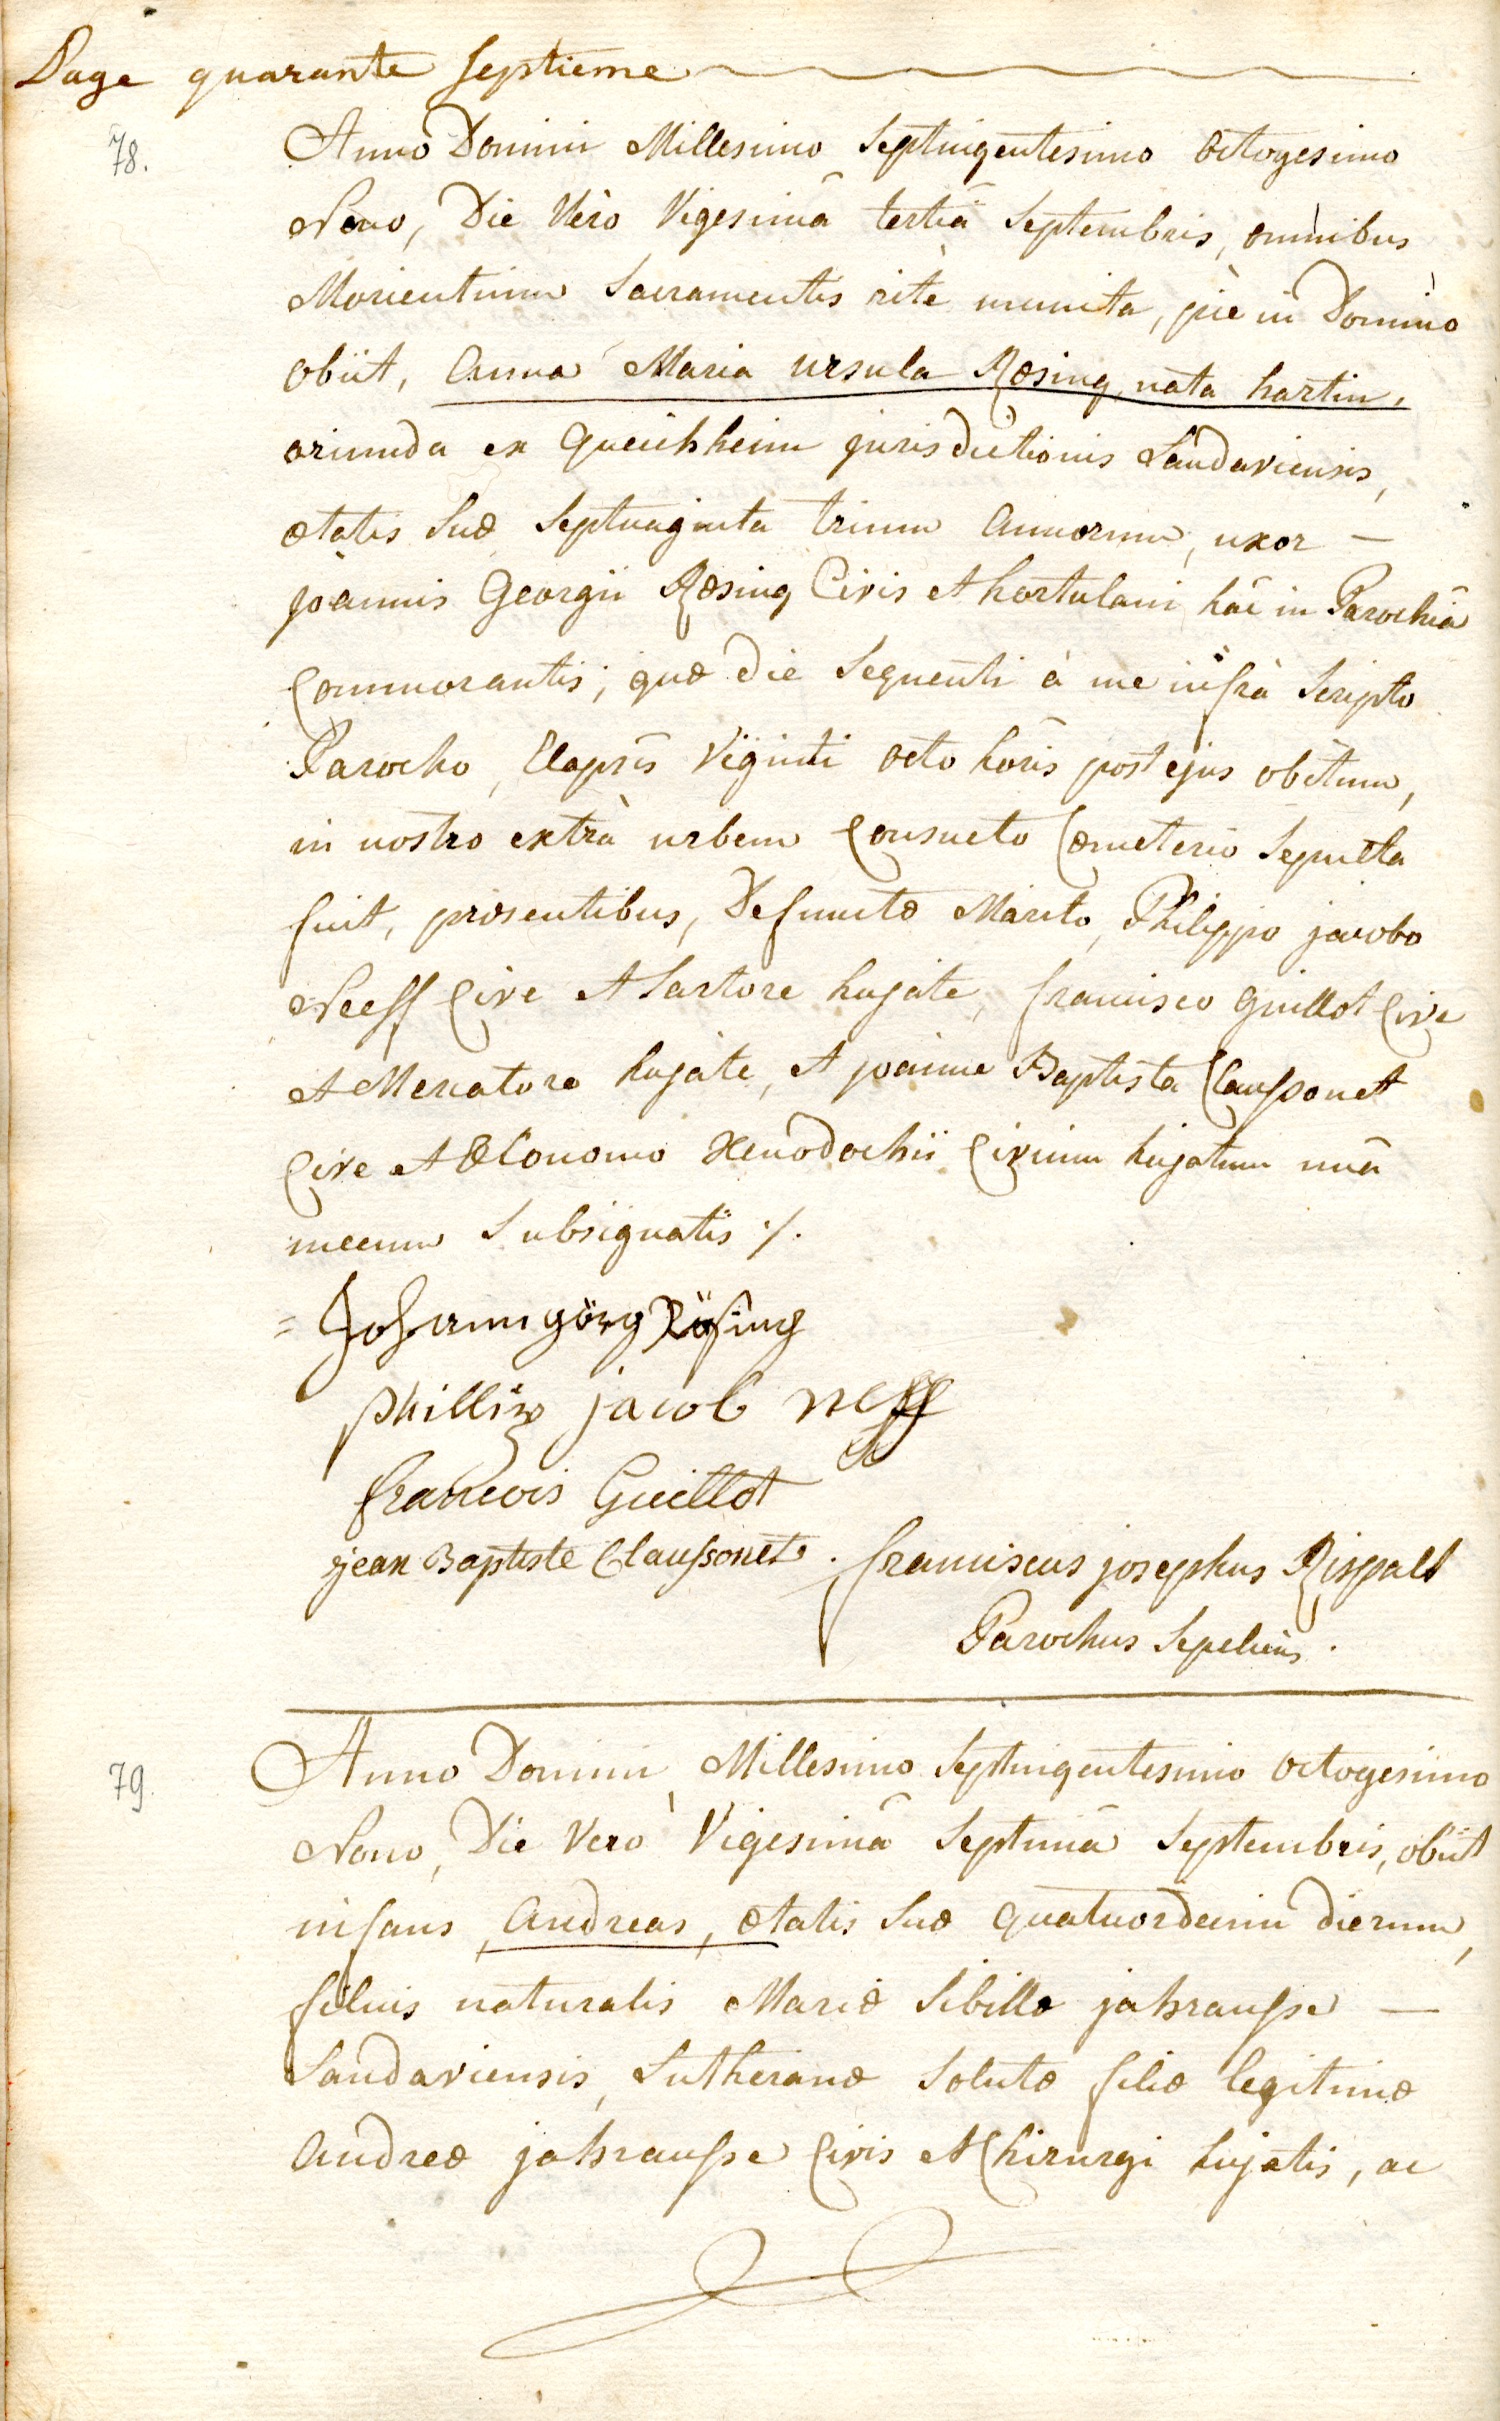 Page quarante septieme
78.
Anno Domini Millesimo Septingentesimo octogesimo
Nono, Die Verò Vigesimâ tertiâ Septembris, omnibus
Morientium Sacramentis ritè munita, piè in Domino
obiit, Anna Maria ursula Rœsing nata hartin,
oriunda ex Queichheim jurisdictionis Landaviensis,
ætatis suæ septuaginta trium annorum, uxor —
joannis Georgii Rœsing Civis et hortulani hâc in Parochiâ
Commorantis; quæ die sequenti à me infrà scripto
Parocho, Elapsis viginti octo horis post ejus obitum,
in nostro extrà urbem Consueto Cœmeterio Sepulta
fuit, præsentibus, Defunctæ Marito, Philippo jacobo
Neeff Cive et Sartore hujate, francisco Guillot Cive
et Mercatore hujate, et joanne Baptista Claussonet
Cive et Œconomo Xenodochii Civium hujatum unâ
mecum Subsignatis ./.
= Johann görg Rösing
phillip jacob neff
francois Guillot
jean Baptiste Claussonet . franciscus josephus Rippalt
Parochus Sepeliens .
79.
Anno Domini Millesimo Septingentesimo octogesimo
Nono, Die Verò Vigesimâ Septimâ Septembris, obiit
infans, Andreas, ætatis suæ quatuordecim dierum,
filius naturalis Mariæ Sibillæ jahrausse —
Landaviensis, Lutheranæ Solutæ filiæ legitimæ
Andreæ jahrausse Civis et Chirurgi hujatis, ac